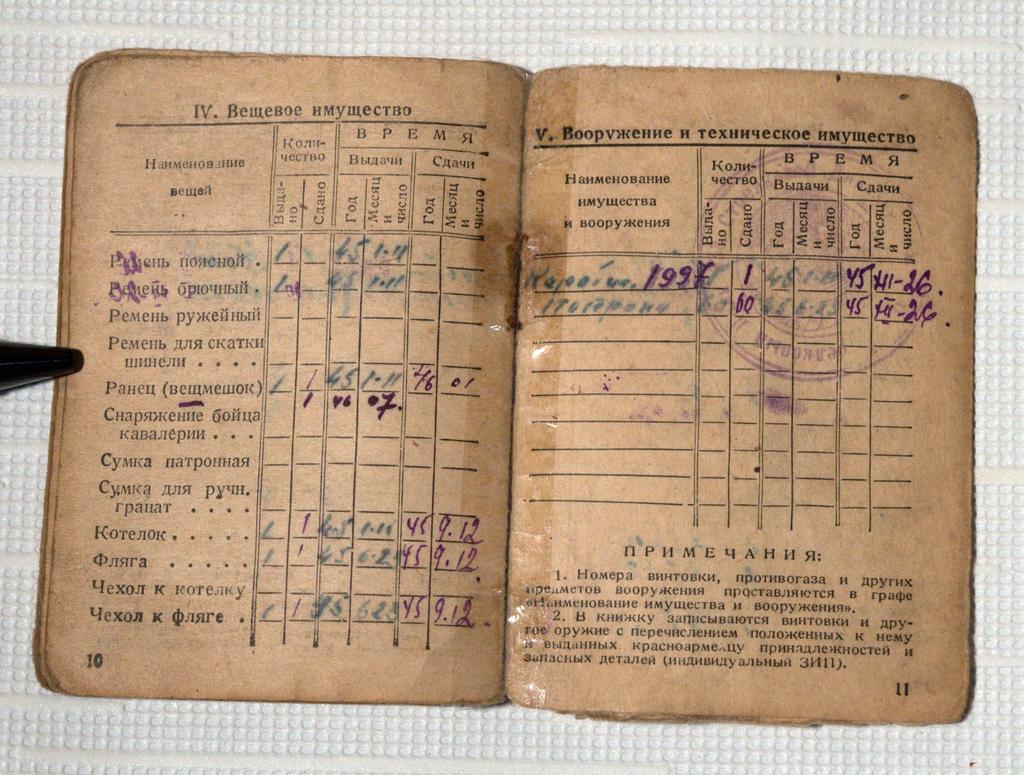 IV. Вещевое имущество
Наименование вещей
Количество
ВРЕМЯ
Выдачи
Сдачи
Выдано
Сдано
Год
Месяц и число
Год
Месяц и число
Ремень поясной . 1 45 1·11
Ремень брючный . 1 45 1·11
Ремень ружейный
Ремень для скатки
шинели . . . .
Ранец (вещмешок) 1 1 45 1·11 46 01
1 46 07.
Снаряжение бойца
кавалерии . . .
Сумка патронная
Сумка для ручн.
гранат . . . .
Котелок . . . . . 1 1 45 1·11 45 9.12
Фляга . . . . . 1 1 45 45 9.12
Чехол к котелку
Чехол к фляге . 1 1 45 9.12
10
V. Вооружение и техническое имущество
Наименование
имущества
и вооружения
Количество
ВРЕМЯ
Выдачи
Сдачи
Выдано
Сдано
Год
Месяц и число
Год
Месяц и число
Карабин 1997 1 45 1·11 45 III-26.
Патроны 60 60 45 6·23 45 III-26.
ПРИМЕЧАНИЯ:
1. Номера винтовки, противогаза и других
предметов вооружения проставляются в графе
«Наименование имущества и вооружения».
2. В книжку записываются винтовки и дру-
гое оружие с перечислением положенных к нему
и выданных красноармейцу принадлежностей и
запасных деталей (индивидуальный ЗИП).
11